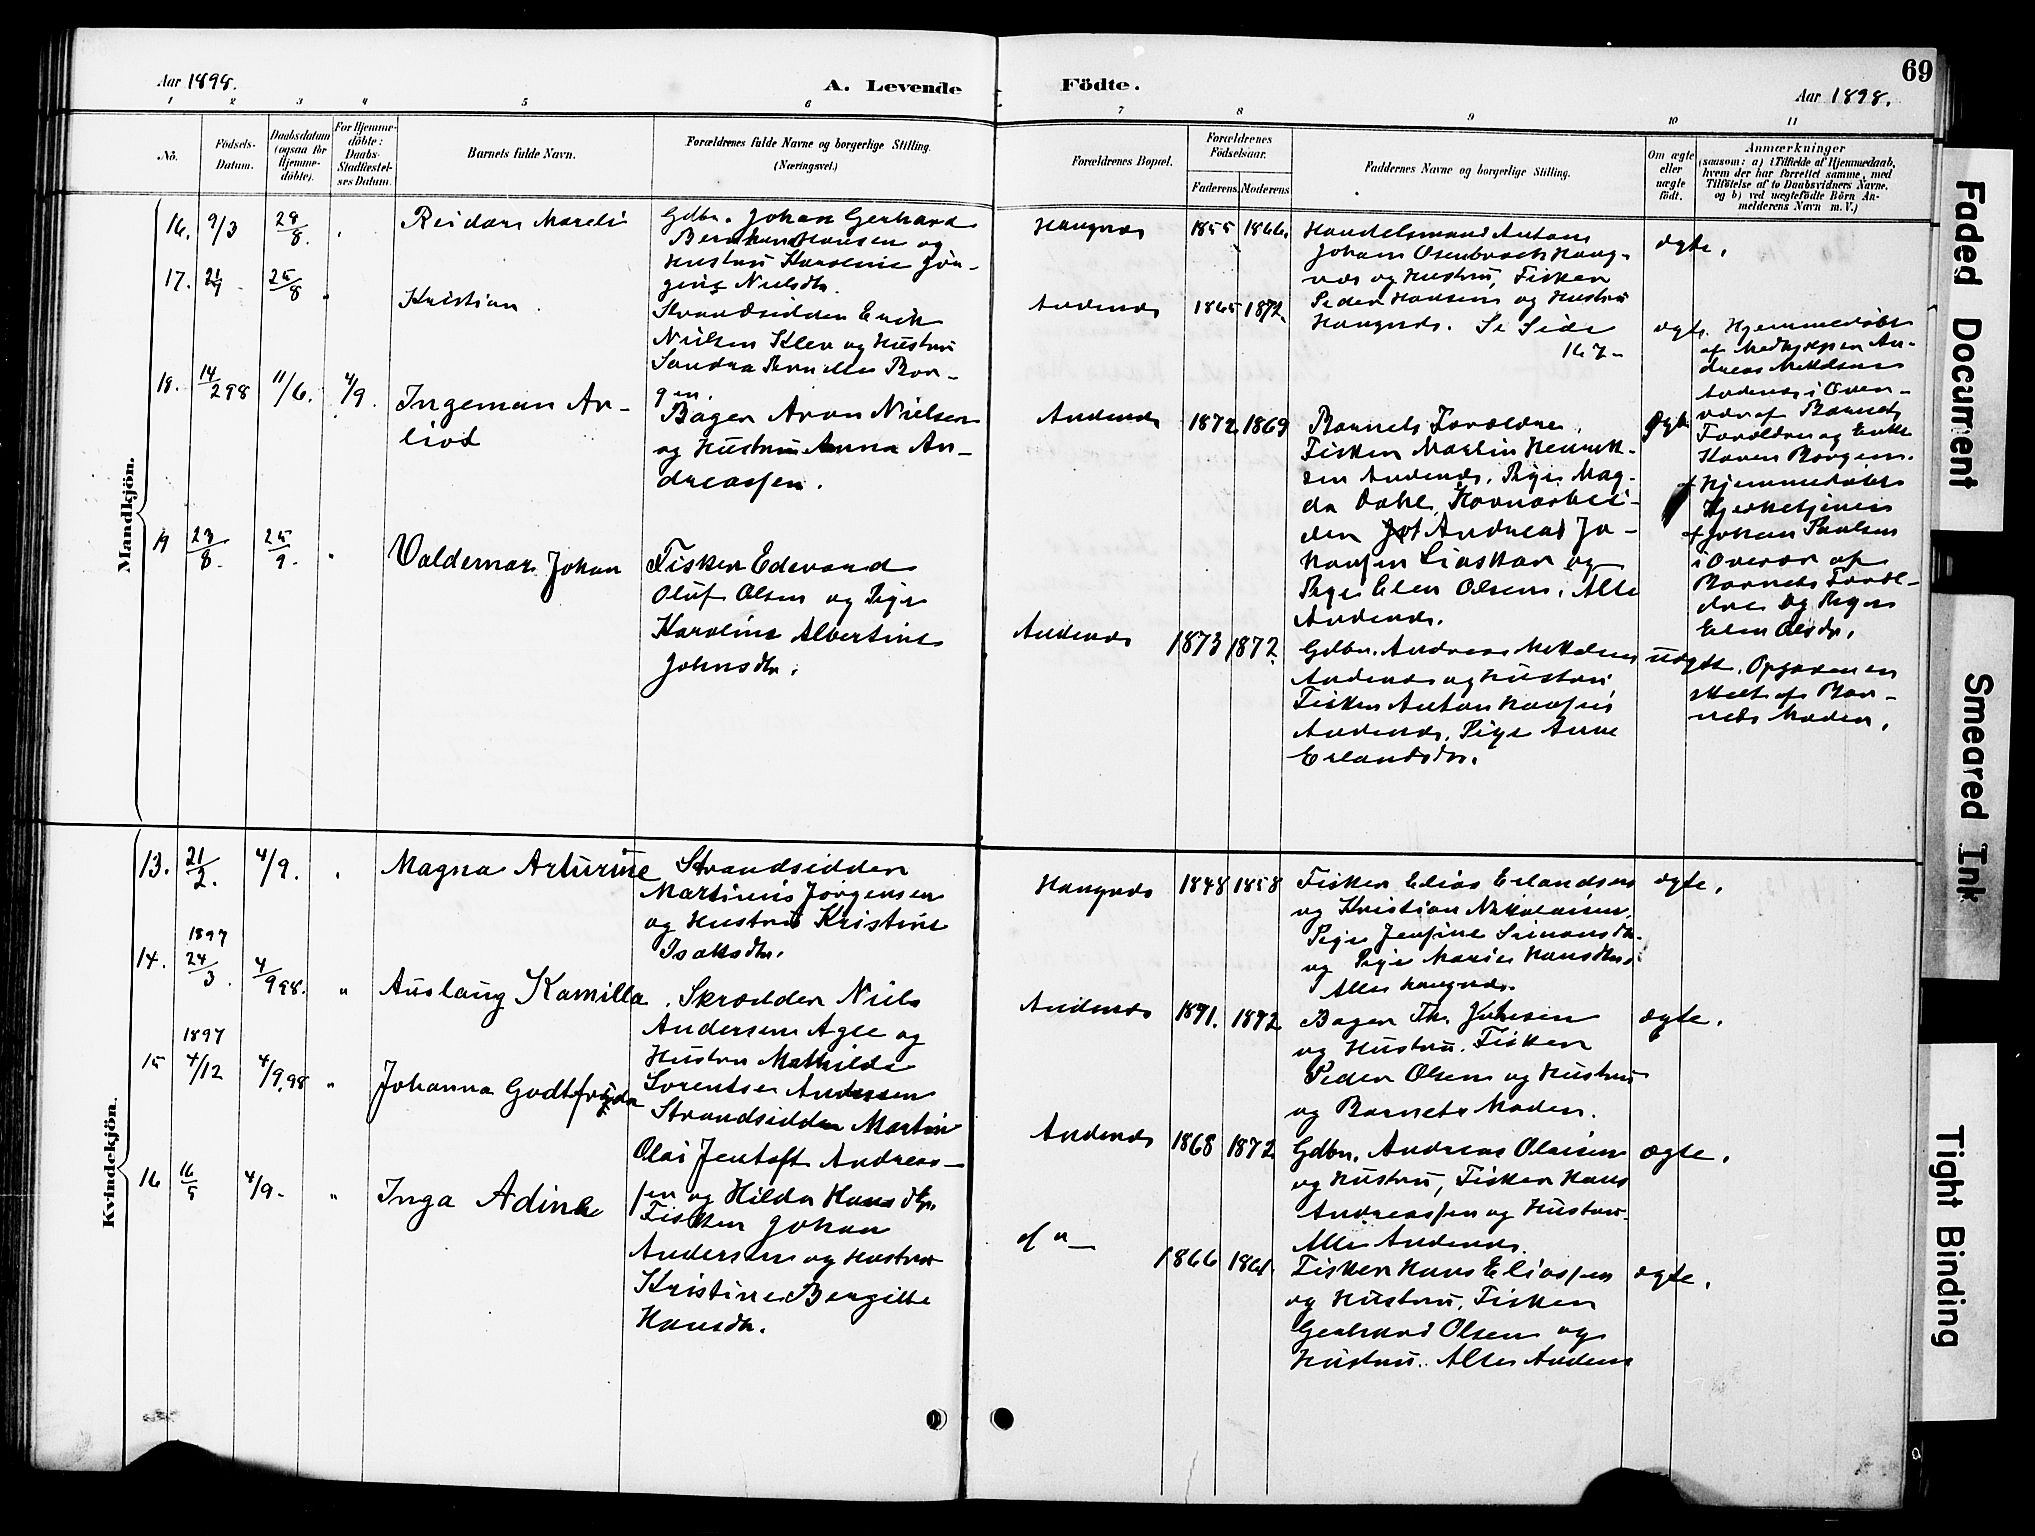 Aar 1898.
A. Levende
Födte.
Aar 1898.
69
1 2 3 4 5 6 7 8 9 10 11
No.
Födsels-
Datum.
Daabsdatum
(ogsaa för
Hjemme-
döbte).
For Hjemme-
döbte:
Daabs-
Stadfæstel-
ses Datum.
Barnets fulde Navn.
Forældrenes fulde Navne og borgerlige Stilling.
(Næringsvei.)
Forældrenes Bopæl.
Forældrenes
Födselsaar.
Faderens. Moderens.
Faddernes Navne og borgerlige Stilling.
Om ægte
eller
uægte
födt.
Anmærkninger
(saasom: a) i Tilfælde af Hjemmedaab,
hvem der har forrettet samme, med
Tilföielse af to Daabsvidners Navne,
og b) ved uægtefödte Börn An-
melderens Navn m. V.)
Mandkjön.
16. 9/3 28/8.
Reidar Mareli
Gdbr. Johan Gerhard
Hansen og
Hustru Karoline Jör-
gine Nielsdtr.
Haugnæs 1855 1866.
Handelsmand Anton
Johan Haug-
næs og Hustru, Fisker
Peder Hansen og Hustru
Haugnæs. Se Side
167-
ægte.
17. 25/8 "
Kristian.
Strandsidder Erik
Nielsen Klev og Hustru
Sandra Bor-
gen.
Andenæs 1865 1872.
ægte.
Hjemmedöbt
af Medhjelper An-
dreas
Andenæs i Over-
vær af Barnets
Forældre og Enke
Karen Borgen.
18. 14/2 98 11/6. 4/9.
Ingeman Ar-
livd
Bager Aron Nielsen
og Hustru Anna An-
dreassen.
Andenæs 1872 1869
Barnets Forældre,
Fisker Martin Henrik-
sen Andenæs, Pige Mag-
da Dahl, Havnearbei-
der Andreas Jo-
hansen og
Pige Elen Olsen, Alle
Andenæs.
Ægte
Hjemmedöbt
Johan Paulsen
i Overvær af
Barnets Foræl-
dre og Pige
Elen Olsdtr.
19 23/8. 25/9. "
Valdemar Johan
Fisker Edevard
Oluf Olsen og Pige
Karoline Albertine
Johnsdtr.
Andenæs 1873 1872.
Gdbr. Andreas
Andenæs og Hustru
Fisker Anton Hansen
Andenæs, Pige Anne
Erlandsdtr.
uægte.
Opgaven er
skeet af Bar-
nets Moder.
Kvindekjön.
13. 21/2. 4/9.
Magna Arturine
Strandsidder
Martinus Jörgensen
og Hustru Kristine
Isaksdtr.
Haugnæs 1848 1858
Fisker Elias Erlandsen
og Kristian Nikolaisen,
Pige Jensine Simonsdtr.
og Pige Marie Hansdtr.
Alle Haugnæs.
ægte.
1897
14. 24/3. 4/9 98. "
Auslaug Kamilla
Skrædder Niels
Andersen Agle og
Hustru Mathilde
Lorentse Andersen
Andenæs 1871. 1872
Bager Th. Johnsen
og Hustru. Fisker
Peder Olsen og Hustru
og Barnets Moder.
ægte.
1897
15 4/12 4/9.98 "
Johanna Godtfryda
Strandsidder Martin
Olai Jentoft Andreas-
sen og Hilda Hansdtr.
Andenæs 1868 1872
Gdbr. Andreas Olaisen
og Hustru, Fisker Hans
Andreassen og Hustru.
Alle Andenæs.
ægte.
16 16/5 4/9- "
Inga Adine
Fisker Johan
Andersen og Hustru
Kristine Bergitte
Hansdtr.
1866 1861.
Fisker Hans Eliassen
og Hustru, Fisker
Gerhard Olsen og
Hustru. Alle Andenæs
ægte.
Faded Document
Smeared Ink
Tight Binding